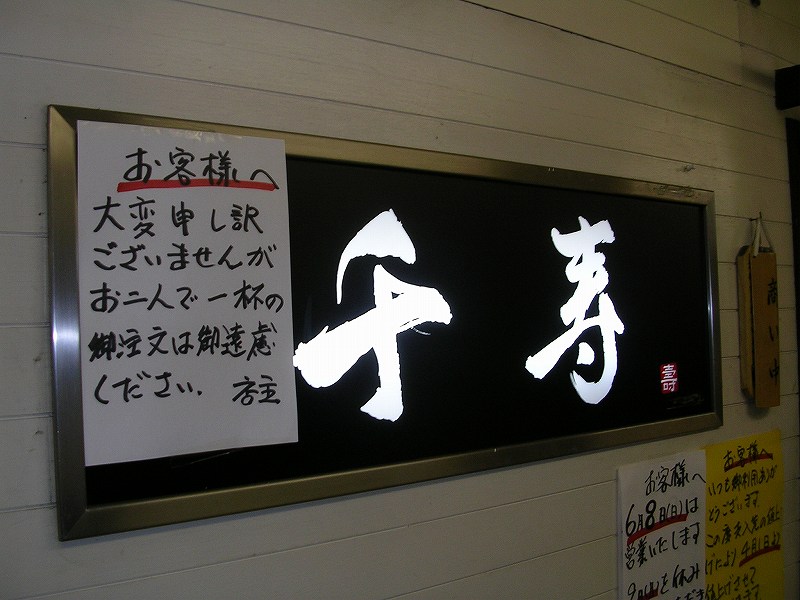 お客様へ
大変申し訳
ございませんが
お二人で一杯の
御注文は御遠慮
ください. 店主
千寿
壽
商い中
お客様へ
6月8日(日)は
営業いたします
を休み
お客様へ
いつも御利用あり
とうございます
この度
げにより4月1日より
上げさせて